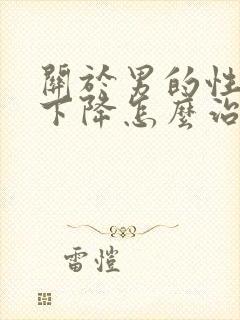 關於男的性
下降怎麼治
雷愷